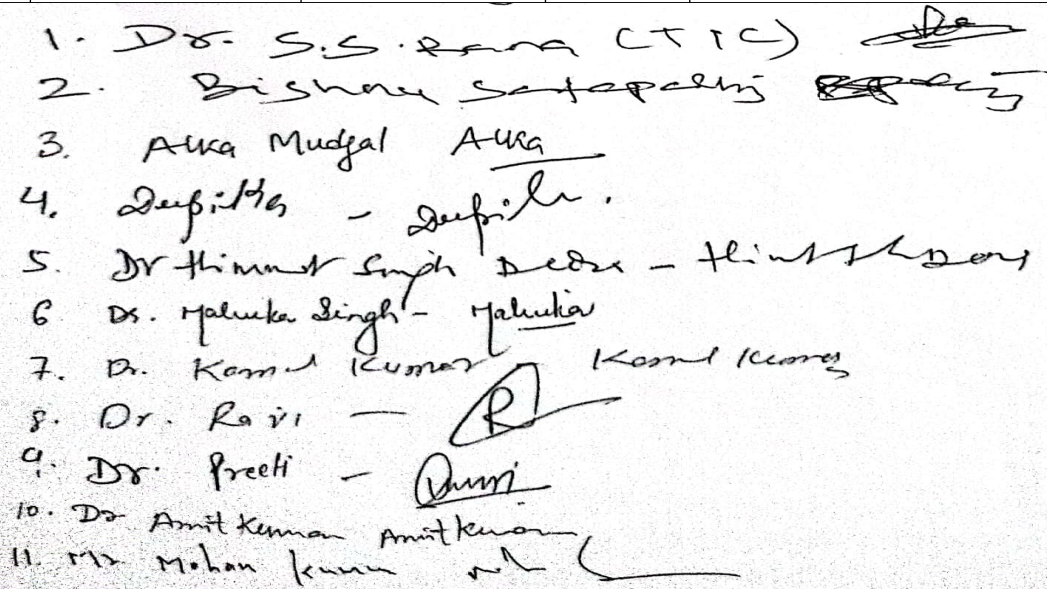 1. Dr. S.S. Rana (TIC)
2. Bishnu Satapathy
3. Alka Mudgal Alka
4. Deepika - Deepika.
5. Dr Himmat Singh -
6 Dr. Malvika Singh - Malvika
7. Dr. Kamal Kumar Kamal Kumar
8. Dr. Ravi — R
9. Dr. Preeti -
10. Dr Amit Kumar Amit Kumar
11. Mr Mohan Kumar